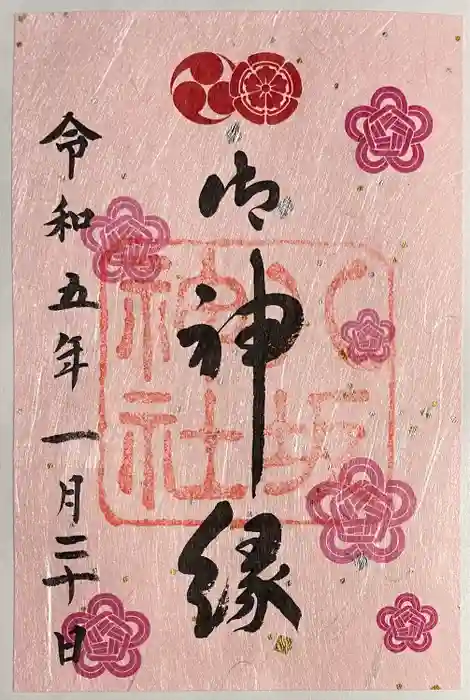 御神縁
八坂神社
令和五年一月二十日